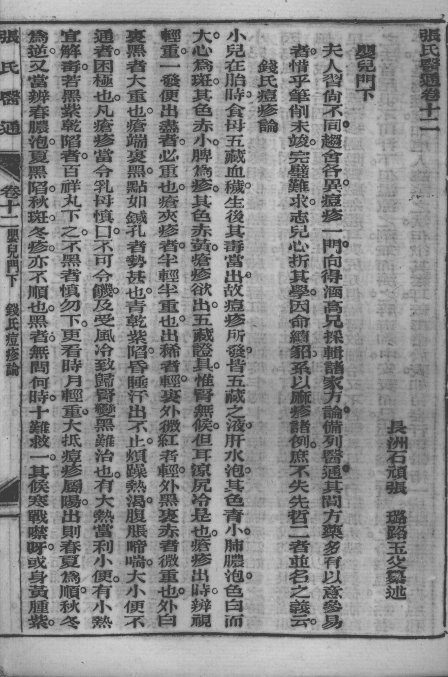 張氏醫通卷十二
長洲石頑張 璐路玉父纂述
嬰兒門下
夫人習尚不同趨舍各異痘疹一門向得涵高兒採輯諸家方論備列醫通其間方藥多有以意參易
者惜乎筆削未竣完璧難求志兒心折其學因命續貂系以麻疹諸例庶不失先哲二者並名之義云
錢氏痘疹論
小兒在胎時食母五藏血穢生後其毒當出故痘疹所發皆五藏之液肝水泡其色青小肺膿泡色白而
大心為斑其色赤小脾為疹其色赤黃瘡疹欲出五藏證具惟腎無候但耳涼尻冷是也瘡疹出時辨視
輕重一發便出盡者必重也瘡夾疹者半輕半重也出稀者輕裏外微紅者輕外黑裏赤者微重也外白
裏黑者大重也瘡端裏黑點如鍼孔者勢甚也青乾紫陷昏睡汗出不止煩躁熱渴腹脹啼喘大小便不
通者困極也凡瘡疹當令乳母慎口不可令饑及受風冷致歸腎變黑難治也有大熱當利小便有小熱
宜解毒若黑紫乾陷者百祥丸下之不黑者慎勿下更看時月輕重大抵痘疹屬陽出則春夏為順秋冬
為逆又當辨春膿泡夏黑陷秋斑冬疹亦不順也黑者無問何時十難救一其候寒戰噤呀或身黃腫紫
張氏醫通 卷十二 嬰兒門下 錢氏痘疹論